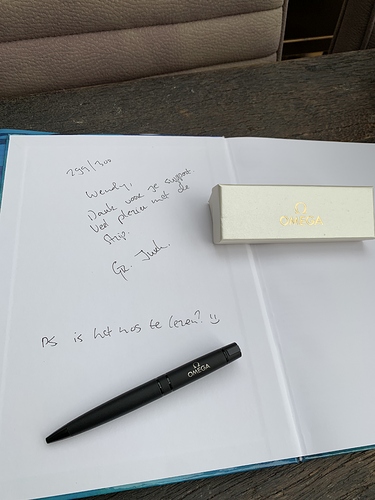 299/300
Wendy,
Dank voor je support
Veel plezier met de
strip.
Gr.
PS is het nog te lezen? :)
Ω
OMEGA
Ω
OMEGA